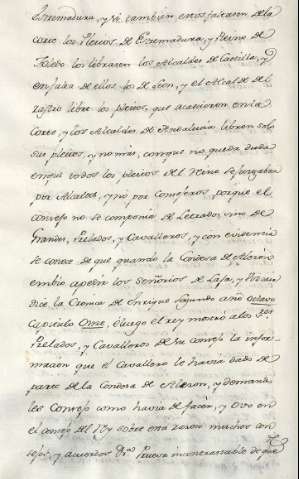 Extremadura, y Si tambien estos faltaren de la
corte los Pleitos, de Extremadura, y Reyno de
Toledo los libraren los Alcaldes de Castilla, y
en falta de ellos los de Leon, y el Alcalde del
rastro libre los pleitos, que acaecieren en la
Corte, y los Alcaldes de Andalucia libren solo
sus pleitos, y no mas, con que no queda duda
en que todos los pleitos del Reino se juzgaban
por Alcaldes, y no por Consejeros, porque el
consejo no se componia de Letrados, sino de
Grandes, Prelados, y Cavalleros, y con evidencia
se conoce de que quando la Condesa de Alanson
embio a pedir los señorios de Lara, y Vizcaia
dice la Cronica de Enrique segundo año octavo
Capitulo Onze, è luego el rey mostró a los
Prelados, y Cavalleros de su consejo la infor-
macion que el Cavallero le havia dado de
parte de la Condesa de Alanson, y demando
les Consejo como havia de facer, y ovo en
el consejo del Rey sobre esta razon muchos con
sejos, y acuerdos Prueva incontrastable de que